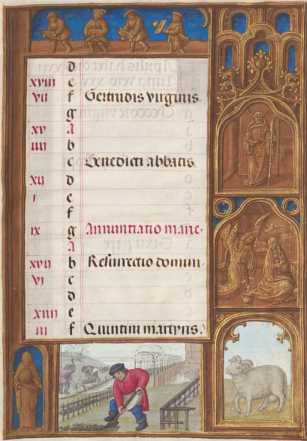 d
xviii e
vii f Gertrudis virginis
g
xv A
iiii b
c Benedicti abbatis
xii d
i e
f
ix g Annuntiatio marie
A
xvii b Resurectio domini
vi c
d
xiiii e
iii f Quintini martyris